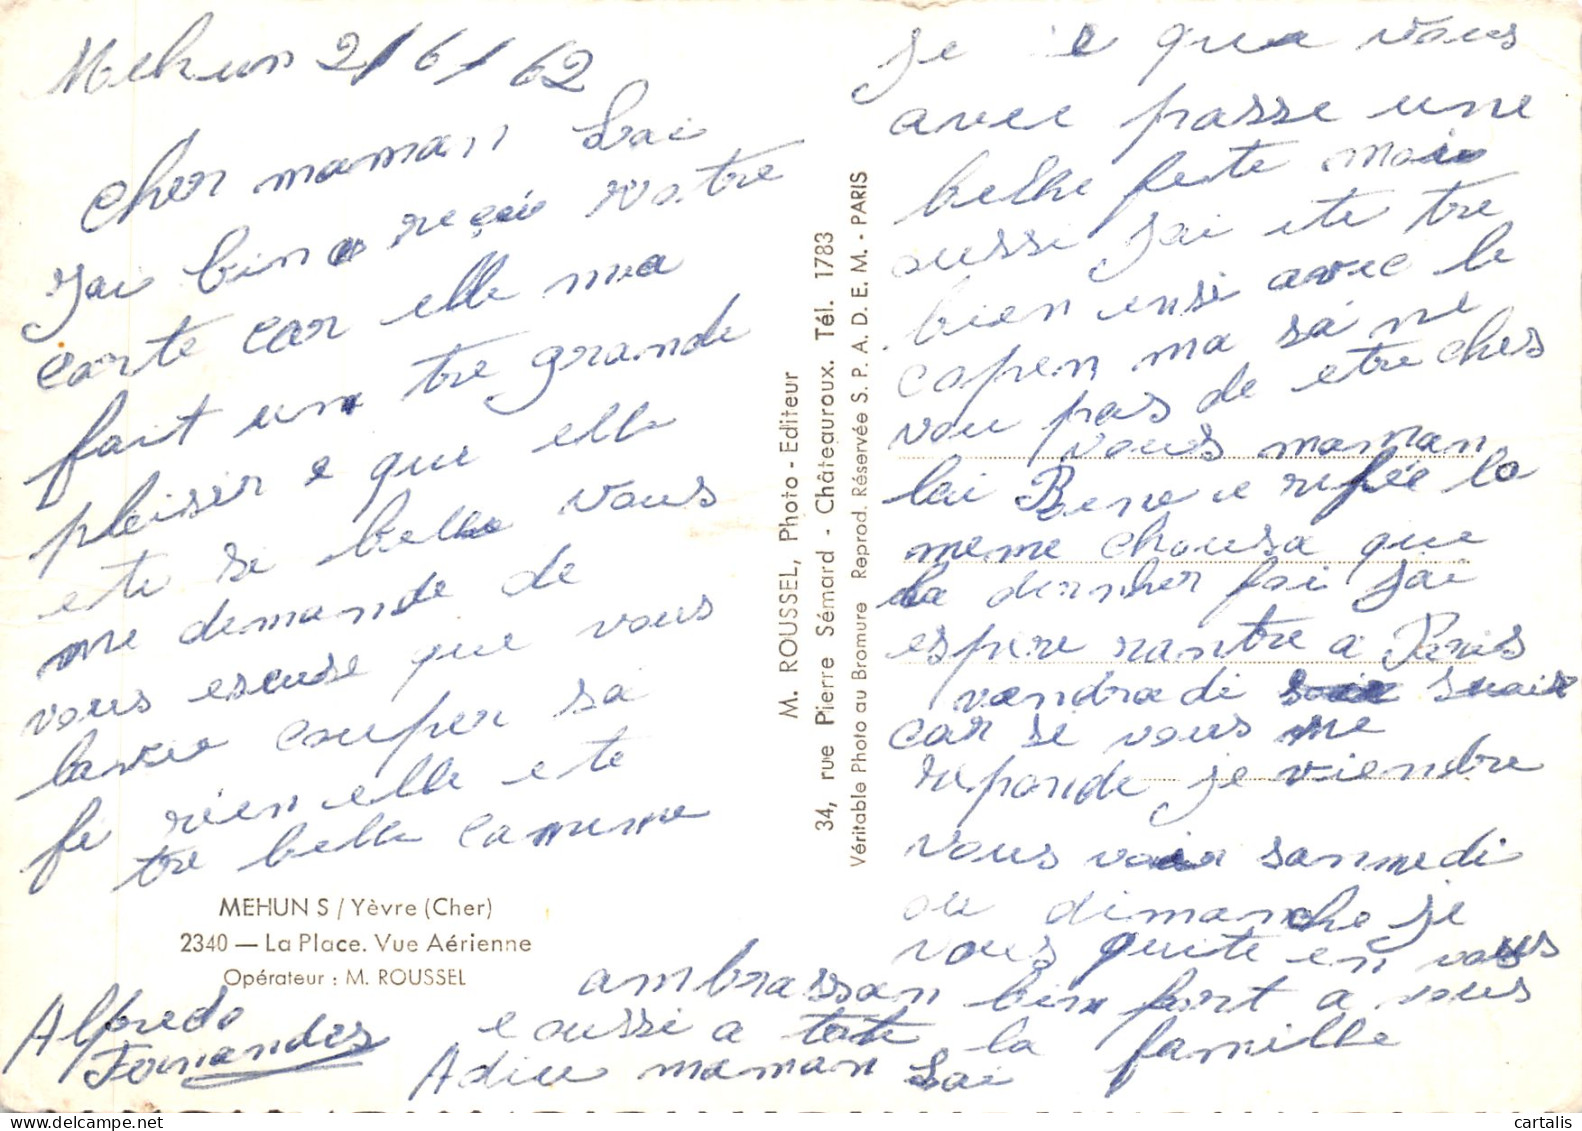 Mehun 2/6/62
cher maman Lai
Jai bien reçei votre
carte car elle ma
fait un tre grande
pleisir e que elle
ete se belle vous
me demande de
vous escuse que vous
couper sa
fe rien elle ete
tre belle comme
MEHUN S / Yèvre (Cher)
2340 — La Place. Vue Aérienne
Opérateur : M. ROUSSEL
Alfredo
Fernandes
M. ROUSSEL, Photo - Editeur
34, rue Pierre Sémard - Châteauroux. Tél. 1783
Véritable Photo au Bromure Reprod. Réservée S. P. A. D. E. M. - PARIS
je que vous
avec passe une
belle feste mais
oussi Jai ete tre
bien ensi avec le
copen ma sa ne
vou pas de etre ches
vous maman
lai Bene e la
meme chousa que
la dernher foi Jai
espere rantre a Paris
vendradi
car se vous me
reponde je viendre
vous voir sanmedi
ou dimanche je
vous quite en vous
ambrassan bien fort a vous
e oussi a tote la famille
Adieu maman Lai
cartalis